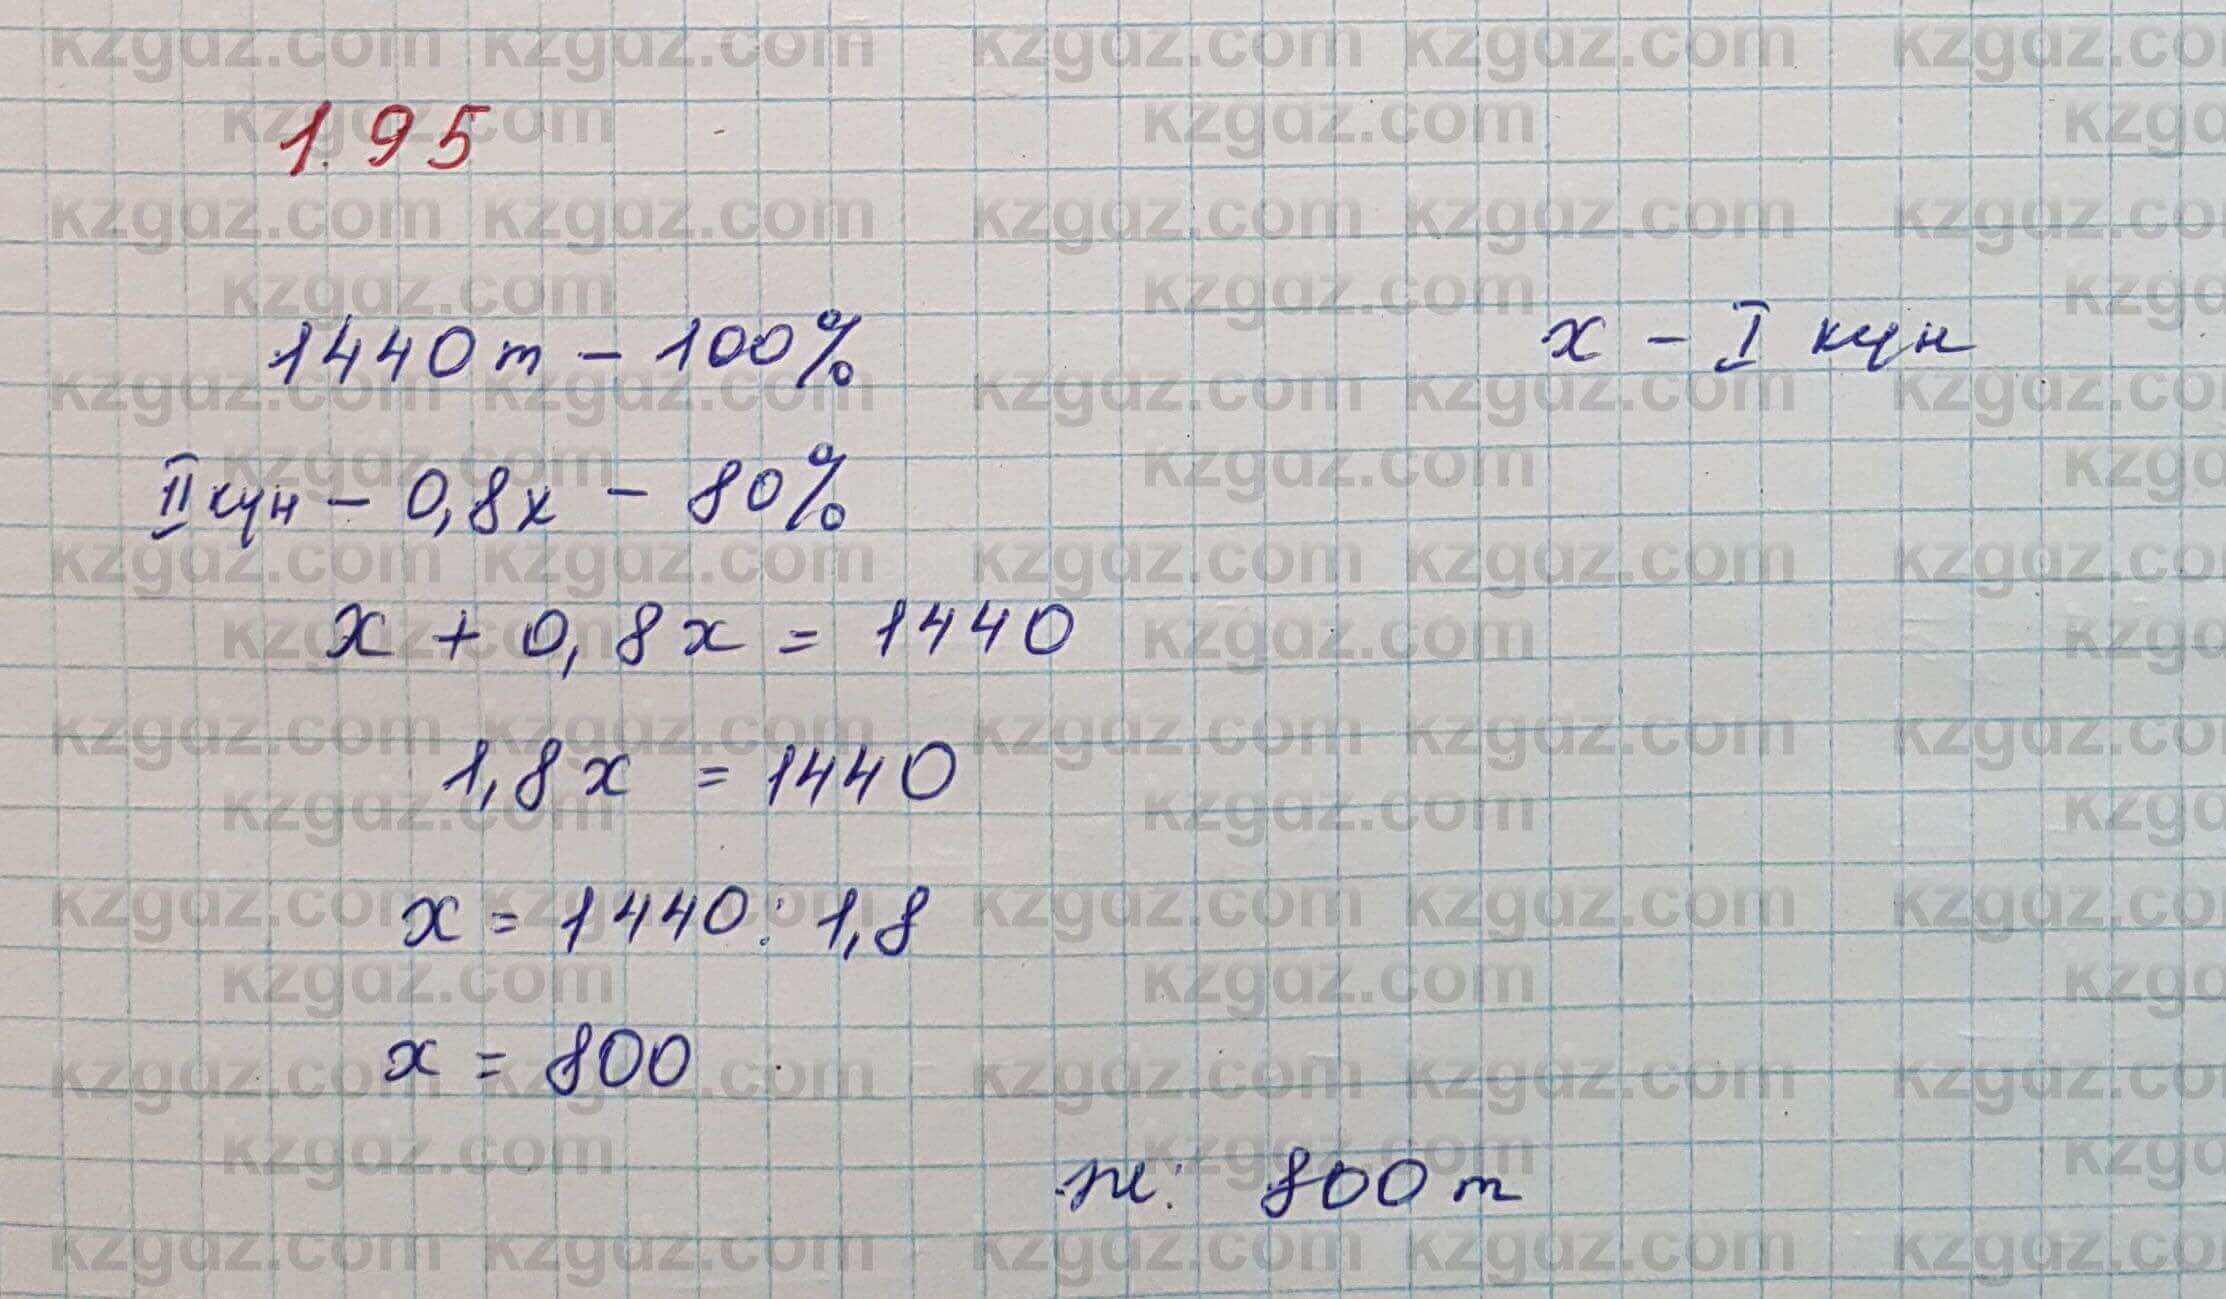 1.95
1440 т - 100%
x - I күн
II күн - 0,8x - 80%
x + 0,8x = 1440
1,8x = 1440
x = 1440 : 1,8
x = 800
ж: 800 т
kzgdz.com